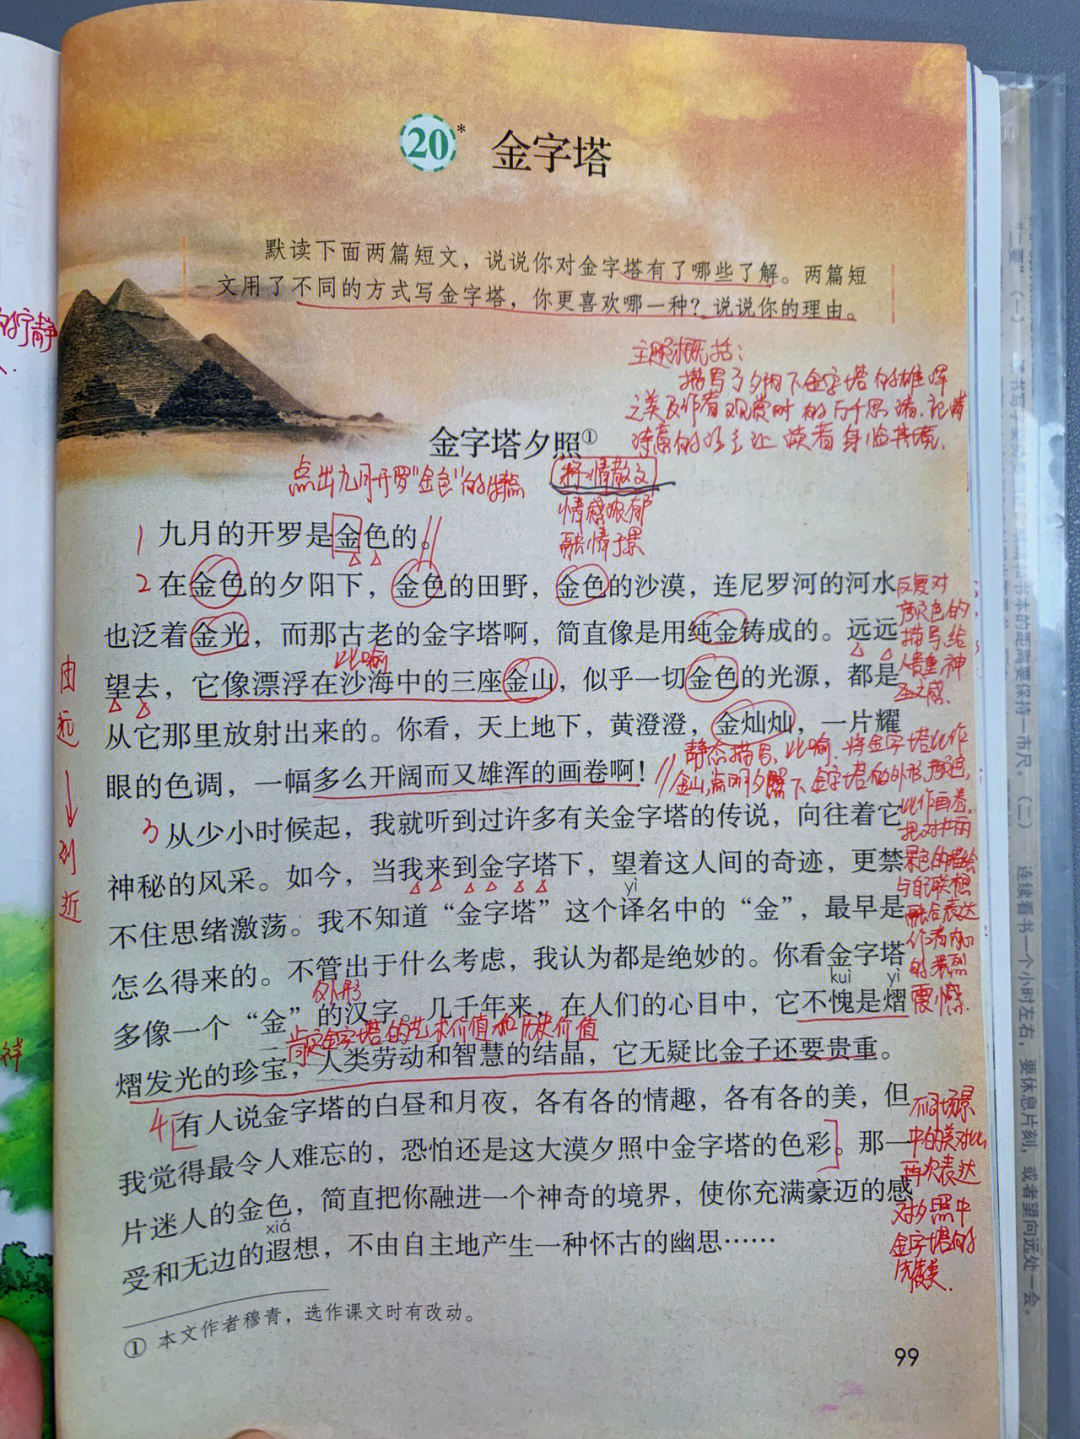 20* 金字塔
默读下面两篇短文，说说你对金字塔有了哪些了解。两篇短
文用了不同的方式写金字塔，你更喜欢哪一种？说说你的理由。
主题概括：
描写了夕阳下金字塔的雄浑
之美及作者观赏时的万千思绪,
让读者身临其境.
金字塔夕照①
点出九月开罗"金色"的特点
抒情散文
情感浓郁
融情于景
1 九月的开罗是金色的。
2 在金色的夕阳下，金色的田野，金色的沙漠，连尼罗河的河水
也泛着金光，而那古老的金字塔啊，简直像是用纯金铸成的。远远
比喻
望去，它像漂浮在沙海中的三座金山，似乎一切金色的光源，都是
从它那里放射出来的。你看，天上地下，黄澄澄，金灿灿，一片耀
眼的色调，一幅多么开阔而又雄浑的画卷啊！
反复对
颜色的
描写,给
人贵重,神
圣之感.
静态描写，比喻，将金字塔比作
金山,点明夕照下金字塔的外形,颜色,
比作画卷.
把对
景色的描绘
与自己联想
融合表达
作者内心
的强烈
震撼.
由
远
到
近
3 从少小时候起，我就听到过许多有关金字塔的传说，向往着它
神秘的风采。如今，当我来到金字塔下，望着这人间的奇迹，更禁
yì
不住思绪激荡。我不知道“金字塔”这个译名中的“金”，最早是
怎么得来的。不管出于什么考虑，我认为都是绝妙的。你看金字塔
外形
kuì yì
多像一个“金”的汉字。几千年来，在人们的心目中，它不愧是熠
肯定金字塔的艺术价值和历史价值
熠发光的珍宝，人类劳动和智慧的结晶，它无疑比金子还要贵重。
4 有人说金字塔的白昼和月夜，各有各的情趣，各有各的美，但
我觉得最令人难忘的，恐怕还是这大漠夕照中金字塔的色彩。那一
片迷人的金色，简直把你融进一个神奇的境界，使你充满豪迈的感
xiá
受和无边的遐想，不由自主地产生一种怀古的幽思……
不同场景
中的美对比,
再次表达
对夕照中
金字塔的
赞美.
① 本文作者穆青，选作课文时有改动。
99
的宁静
连续看书一个小时左右，要休息片刻，或者望向远处一会。